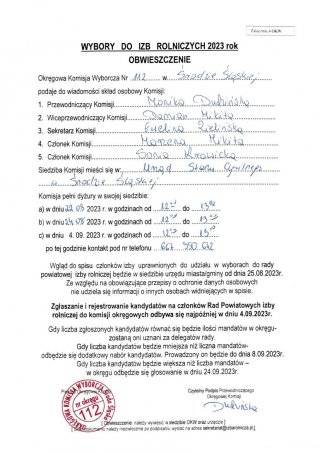 WYBORY DO IZB ROLNICZYCH 2023 rok
OBWIESZCZENIE
Okręgowa Komisja Wyborcza Nr 112 w Środzie Śląskiej
podaje do wiadomości skład osobowy Komisji:
1. Przewodniczący Komisji Monika
2. Wiceprzewodniczący Komisji Damian Mikita
3. Sekretarz Komisji Ewelina Zielińska
4. Członek Komisji Marzena Mikita
5. Członek Komisji Sonia
Siedziba Komisji mieści się w: Urząd Stanu Cywilnego
w Środzie Śląskiej
Komisja pełni dyżury w swojej siedzibie:
a) w dniu 22.08 2023 r. w godzinach od 12 do 13
b) w dniu 24.08 2023 r. w godzinach od 12 do 13
c) w dniu 4. 09. 2023 r. w godzinach od 12 do 13
po tej godzinie kontakt pod nr telefonu 667
Wgląd do spisu członków izby uprawnionych do udziału w wyborach do rady
powiatowej izby rolniczej będzie w siedzibie urzędu miasta/gminy od dnia 25.08.2023r.
Ze względu na obowiązujące przepisy o ochronie danych osobowych
nie udziela się informacji o innych osobach widniejących w spisie.
Zgłaszanie i rejestrowanie kandydatów na członków Rad Powiatowych izby
rolniczej do komisji okręgowych odbywa się najpóźniej w dniu 4.09.2023r.
Gdy liczba zgłoszonych kandydatów równać się będzie ilości mandatów w okręgu-
zostaną oni uznani za delegatów rady.
Gdy liczba kandydatów będzie mniejsza niż liczba mandatów-
odbędzie się dodatkowy nabór kandydatów. Prowadzony on będzie do dnia 8.09.2023r.
Gdy liczba kandydatów będzie większa niż liczba mandatów –
w okręgu odbędzie się głosowanie w dniu 24.09.2023r.
Czytelny Podpis Przewodniczącego
Okręgowej Komisji
OKRĘGOWA KOMISJA WYBORCZA
nr okręgu
112
Obwieszczenie należy wywiesić w siedzibie OKW oraz urzędzie